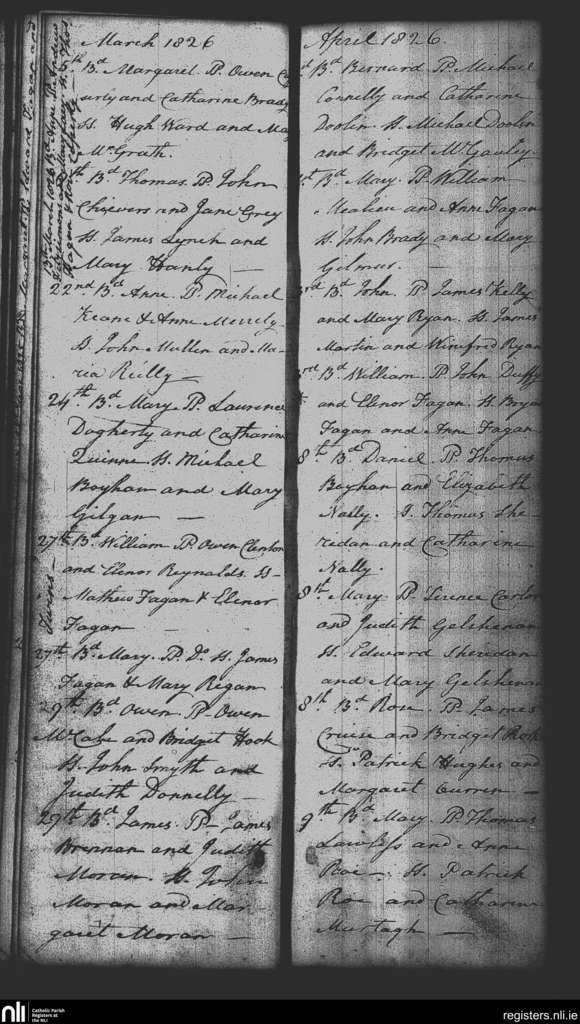 March 1826
th Bd Margaret. P. Owen
and Catharine Brady
S. Hugh Ward and
McGrath.
th Bd Thomas. P. John
Chievers and Jane Grey
S. James Lynch and
Mary Hanly —
22nd Bd Anne. P. Michael
Keane & Anne
S John Mullen and Ma-
ria Reilly —
24th Bd Mary. P. Laurence
Dogherty and Catharin
Quinne S. Michael
Boyhan and Mary
Gilgan —
27th Bd William P. Owen Clinton
and Elenor Reynolds. S-
Mathew Fagan & Elenor
Fagan —
Twins —
27th Bd Mary. P. Do S. James
Fagan & Mary Regan
29th Bd Owen. P- Owen
McCabe and Bridget Hook
S. John Smyth and
Judith Donnelly —
29th Bd James. P- James
Brennan and Judith
Moran. S. John
Moran and Mar-
garet Moran —
April 1826.
Bd Bernard P. Michael
Connelly and Catharine
Doolin. S. Michael Doolin
and Bridget McGauley
Bd Mary. P. William
and Anne Fagan
S. John Brady and Mary
Gilmer. —
3rd Bd John. P James Kelly
and Mary Ryan. S. James
Martin and Winifred Ryan
3rd Bd William. P John Duffy
and Elenor Fagan. S. Bryan
Fagan and Anne Fagan
8th Bd Daniel. P. Thomas
Boyhan and Elizabeth
Nally. S. Thomas She
ridan and Catharine
Nally.
8th Mary. P. Terence
and Judith Gelshenan
S. Edward Sheridan
and Mary Gelshenan
8th Bd Rose. P. James
Cruise and Bridget
S. Patrick Hughes and
Margaret Curren —
9th Bd Mary. P Thomas
Lawless and Anne
Roe —. S. Patrick
Roe and Catharine
Murtagh —
nli
Catholic Parish
Registers at
the NLI
registers.nli.ie